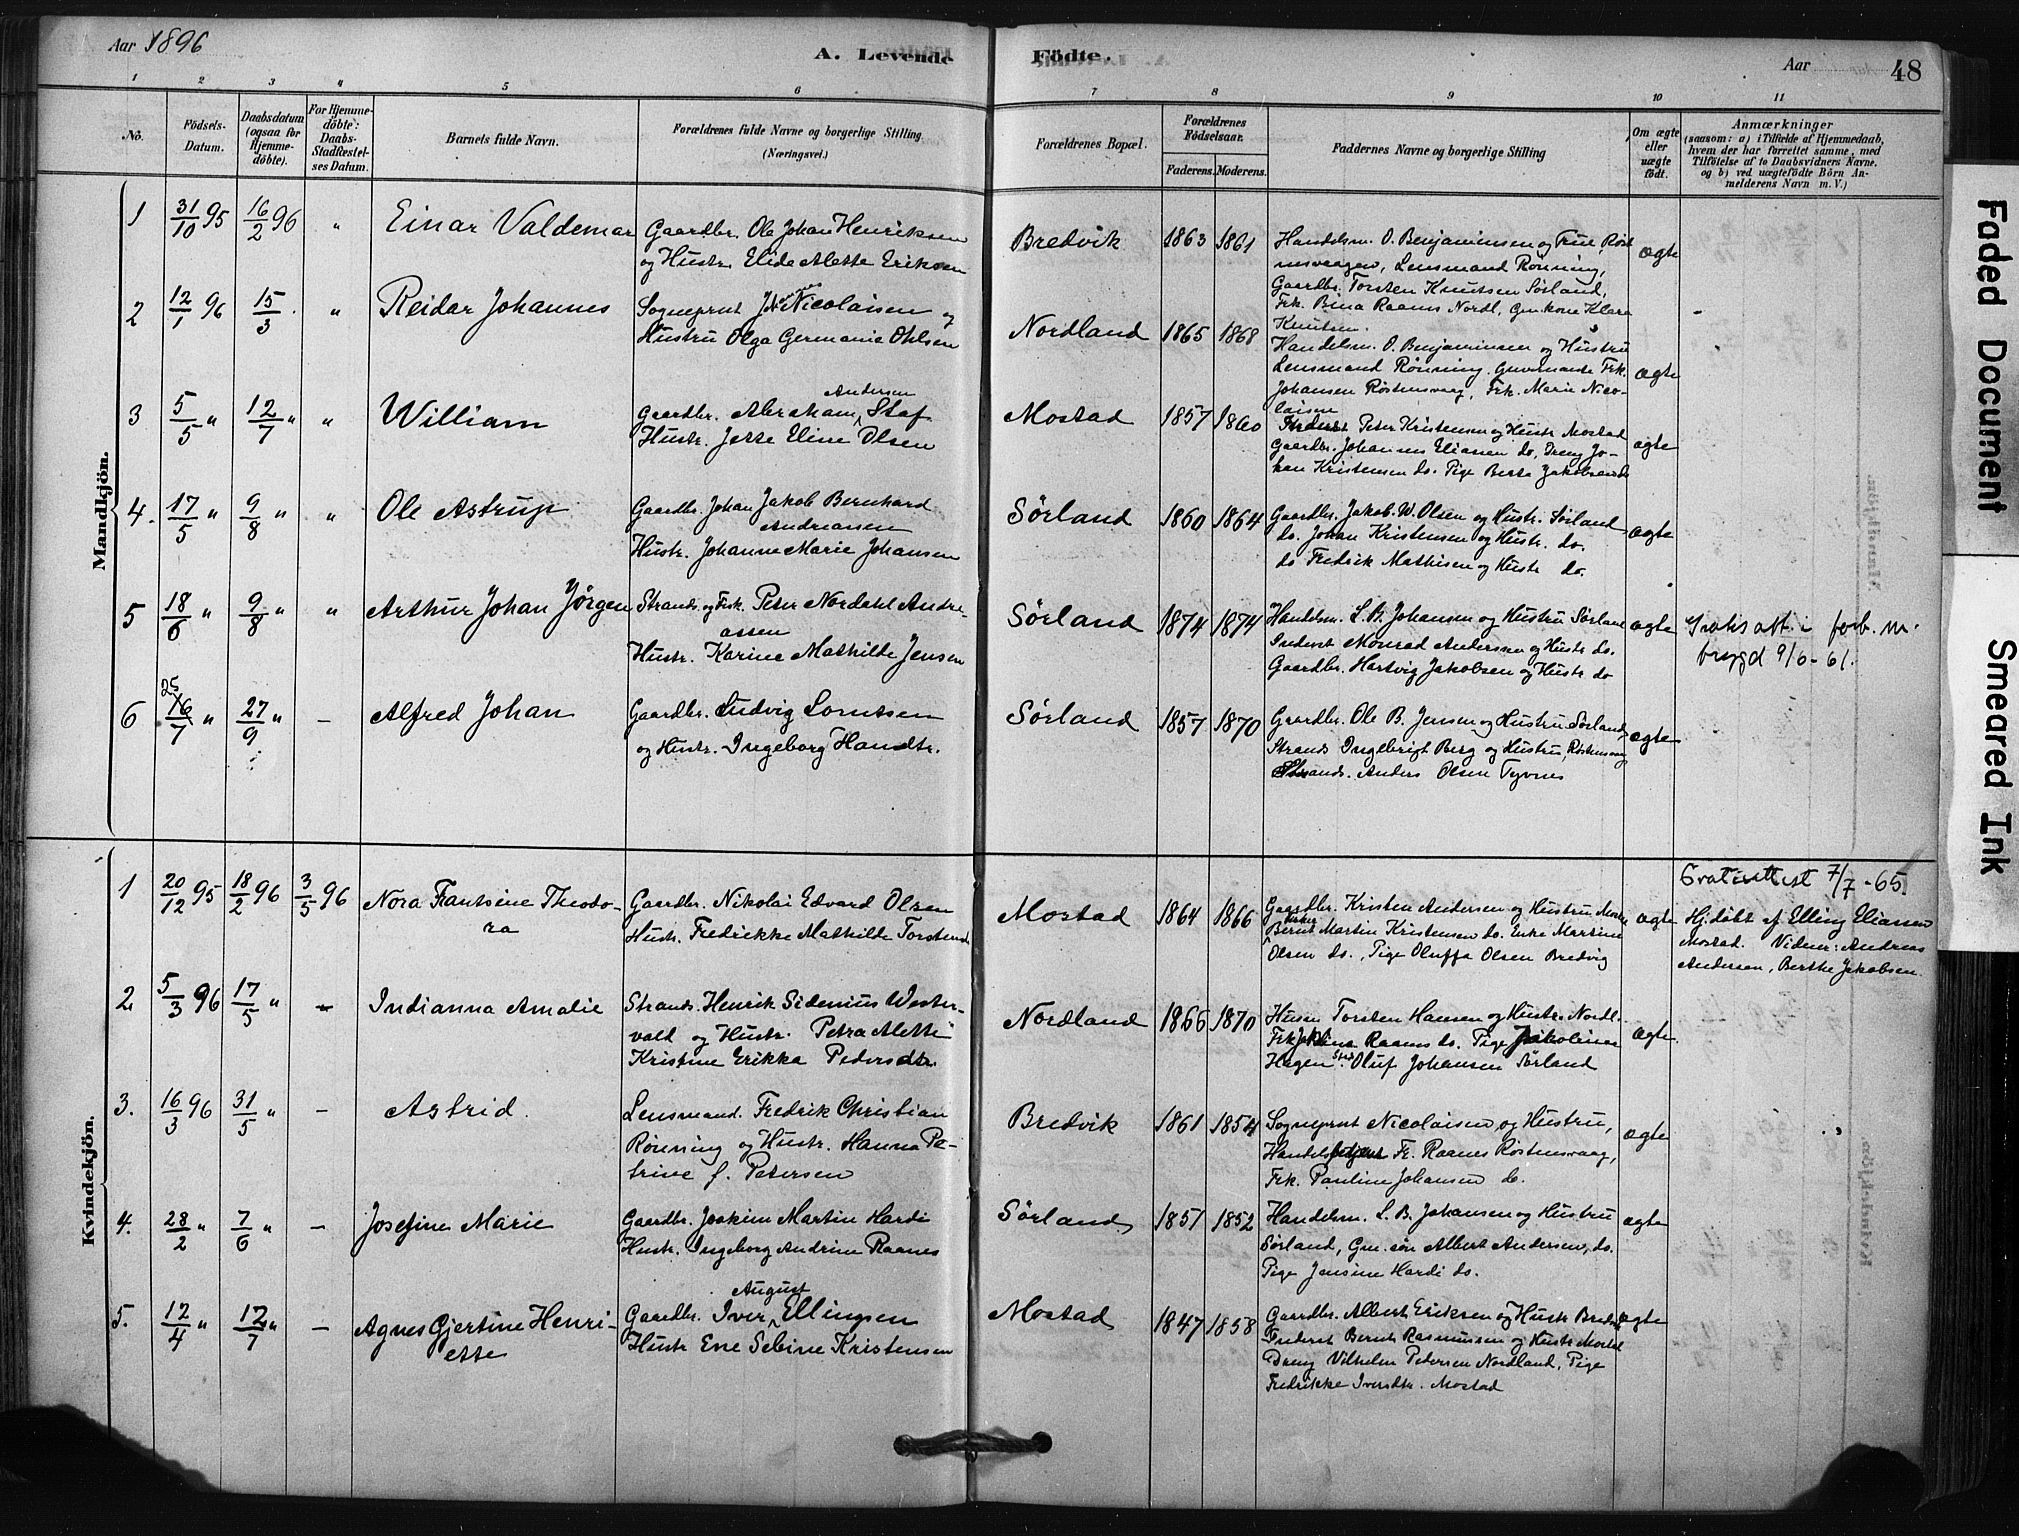 Aar 1896
A. Levende Födte.
Aar
48
1 2 3 4 5 6 7 8 9 10 11
No.
Födsels-Datum.
Daabsdatum (ogsaa for Hjemme-döbte).
For Hjemme-döbte: Daabs-Stadfæstel-ses Datum.
Barnets fulde Navn.
Forældrenes fulde Navne og borgerlige Stilling.
(Næringsvei.)
Forældrenes Bopæl.
Forældrenes Födselsaar.
Faderens. Moderens.
Faddernes Navne og borgerlige Stilling
Om ægte eller uægte födt.
Anmærkninger
(saasom: a) i Tilfælde af Hjemmedaab,
hvem der har forrettet samme, med
Tilföielse af to Daabsvidners Navne.
og b) ved uægtefödte Börn An-
melderens Navn m. V.)
Mandkjön.
1 31/10 95 16/2 96 " Einar Valdemar
Gaardbr. Ole Johan Henriksen
og Hustr. Elida Alette Eriksen
Bredvik 1863 1861
Handelsm. O. Benjaminsen og Frue, Røst
nsvaagen, Lensmand Rønning,
Gaardbr. Torsten Knutsen Sørland,
Frk. Bina Raanes Nordl, Gmkone Klara
Knutsen.
ægte
2 12/1 96 15/3 " Reidar Johannes
Sogneprest Nicolaisen og
Hustru Olga Germania Ohlsen
Nordland 1865 1868
Handelsm. O. Benjaminsen og Hustru
Lensmand Rønning. Guvernante Frk.
Johansen Røstensvaag, Frk. Marie Nico-
laisen
ægte
3 5/5 " 12/7 " " William
Andersen
Gaardbr. Abraham Staf
Hustr. Jette Eline Olsen
Mostad 1857 1860
Inderst Peter Kristensen og Hustr Mostad
Gaardbr. Johannes Eliassen do, Dreng Jo-
han Kristensen do. Pige Berta Jakobsen do
ægte
4. 17/5 " 9/8 " " Ole Astrup
Gaardbr. Johan Jakob Bernhard
Andreassen
Hustr. Johanne Marie Johansen
Sørland 1860 1864
Gaardbr. Jakob W. Olsen og Hustr. Sørland
do. Johan Kristensen og Hustr. do.
do Fredrik Mathisen og Hustr do.
ægte
5 18/6 " 9/8 " " Arthur Johan Jörgen
Strands. og Fisk. Peter Nordahl Andre-
assen
Hustr. Karine Mathilde Jensen
Sørland 1874 1874
Handelsm. L. B. Johansen og Hustru Sørland
Inderst Monrad Andersen og Hustr do.
Gaardbr. Hartvig Jakobsen og Hustr do
ægte
Gratis att. i forb. m.
trygd 9/6-61.
6 25 16/7 " 27/9 " — Alfred Johan
Gaardbr. Ludvig Lorntsen
og Hustr. Ingeborg Hansdtr.
Sørland 1857 1870
Gaardbr. Ole B. Jensen og Hustru Sørland,
Strands Ingebrigt Berg og Hustru, Røstensvaag
Strands. Anders Olsen Tyvnes
ægte
Kvindekjön.
1 20/12 95 18/2 96 3/5 96 Nora Frantsine Theodo-
ra
Gaardbr. Nikolai Edvard Olsen
Hustr. Fredrikke Mathilde Torstensd.
Mostad 1864 1866
Gaardbr. Kristen Andersen og Hustru Mosta
Bernt Martin Kristensen do. Enke Martine
Olsen do., Pige Oluffa Olsen Bredvig
ægte
Gratisattest 7/7-65.
Hj.døbt af Elling Eliassen
Mostad. Vidner: Andreas
Andersen, Berthe Jakobsen
2 5/3 96 17/5 " — Indianna Amalie
Strands. Henrik Sidenius Wester-
vald og Hustr. Petra Alette
Kristine Erikka Pedersdtr.
Nordland 1866 1870
Husm Torsten Hansen og Hustr. Nordl.
Frk Raanes do. Pige Jakobine
Hagen. Oluf Johansen Sørland
ægte
3. 16/3 96 31/5 " — Astrid.
Lensmand. Fredrik Christian
Rønning og Hustr. Hanna Pe-
trine f. Petersen
Bredvik 1861 1854
Sogneprest Nicolaisen og Hustru,
Handelsbetjent Fr. Raanes Røstensvaag,
Frk. Pauline Johansen do.
ægte
4. 28/2 " 7/6 " — Josefine Marie
Gaardbr. Joakim Martin Hardi
Hustr. Ingeborg Andrine Raanes
Sørland 1857 1852
Handelsm. L. B. Johansen og Hustru
Sørland, Gm. søn Albert Andersen, do.
Pige Jensine Hardi do.
ægte
5. 12/4 " 12/7 " — Agnes Gjertine Henri-
ette
August
Gaardbr. Iver Ellingsen
Hustr Ene Sebine Kristensen
Mostad 1847 1858
Gaardbr. Albert Eriksen og Hustr Bredvik
Inderst Bernt Rasmussen og Hustr Mostad
Dreng Vilhelm Pedersen Nordland, Pige
Fredrikke Iversdtr. Mostad
ægte
Faded Document
Smeared Ink